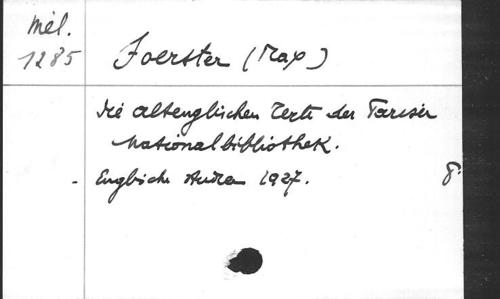 Mél.
1285
Foerster (Max)
Die altenglischen Texte der Pariser
Nationalbibliothek.
- Englische Studien 1927. 8°